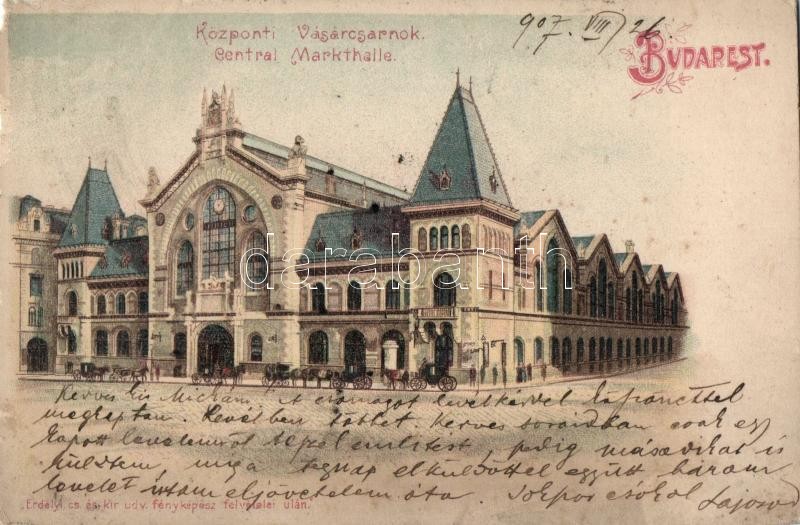 Központi Vásárcsarnok.
Central Markthalle.
907. VIII/26
BUDAPEST.
darabanth.com
Kedves kis Mickám! A csomagot levelkéddel laponcttel
megkaptam. Levélben többet. Kedves soraidban csak egy
kapott levelemről teszel említést, pedig másodikat is
küldtem, míg a tegnap elküldöttel együtt három
levelet írtam eljövetelem óta. Sokszor csókol Lajosod
Erdélyi cs. és kir. udv. fényképész felvételei után.